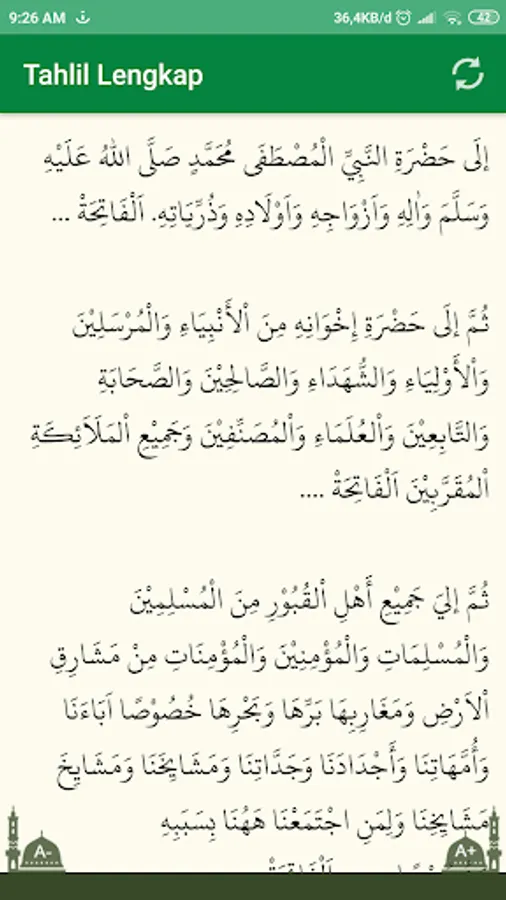 9:26 AM
36,4KB/d
42
Tahlil Lengkap
إِلَى حَضْرَةِ النَّبِيِّ الْمُصْطَفَى مُحَمَّدٍ صَلَّى اللهُ عَلَيْهِ
وَسَلَّمَ وَاٰلِهِ وَاَزْوَاجِهِ وَاَوْلَادِهِ وَذُرِّيَاتِهِ. اَلْفَاتِحَةْ ...
ثُمَّ إِلَى حَضْرَةِ إِخْوَانِهِ مِنَ اْلأَنْبِيَاءِ وَالْمُرْسَلِيْنَ
وَاْلأَوْلِيَاءِ وَالشُّهَدَاءِ وَالصَّالِحِيْنَ وَالصَّحَابَةِ
وَالتَّابِعِيْنَ وَاْلعُلَمَاءِ وَاْلمُصَنِّفِيْنَ وَجَمِيْعِ اْلمَلَاَئِكَةِ
اْلمُقَرَّبِيْنَ اَلْفَاتِحَةْ ....
ثُمَّ إِليَ جَمِيْعِ أَهْلِ اْلقُبُوْرِ مِنَ الْمُسْلِمِيْنَ
وَالْمُسْلِمَاتِ وَالْمُؤْمِنِيْنَ وَالْمُؤْمِنَاتِ مِنْ مَشَارِقِ
اْلاَرْضِ وَمَغَارِبِهَا بَرِّهَا وَبَحْرِهَا خُصُوْصًا اَبَاءَنَا
وَأُمَّهَاتِنَا وَأَجْدَادَنَا وَجَدَّاتِنَا وَمَشَايِخَنَا وَمَشَايِخَ
مَشَايِخِنَا وَلِمَنِ اجْتَمَعْنَا هَهُنَا بِسَبَبِهِ
A-
A+